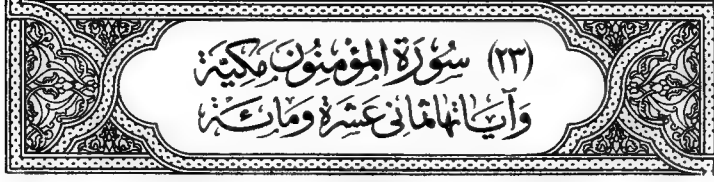 (٢٣) سُوْرَةُ المؤمِنُونَ مَكِيَّة
وَآيَاتُهَا ثَمَانِي عَشْرَةَ وَمِائَة